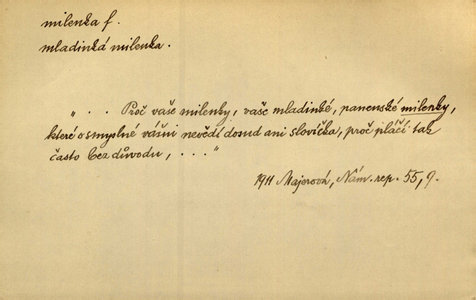 milenka f.
mladinká milenka.
„ . . . Proč vaše milenky, vaše mladinké, panenské milenky,
které o smyslné vášni nevědí dosud ani slovíčka, proč pláčí tak
často bez důvodu, . . . "
1911 Majerová, Nám. rep. 55, 9.